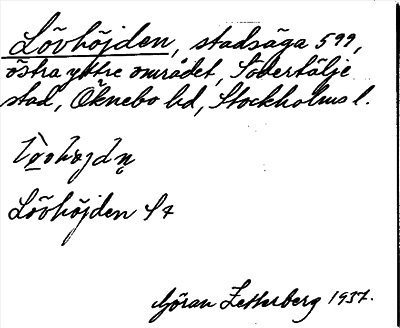 Lövhöjden, stadsäga 599,
östra yttre området, Södertälje
stad, Öknebo hd, Stockholms l.
Lövhöjden S 7
Göran Zetterberg 1937.